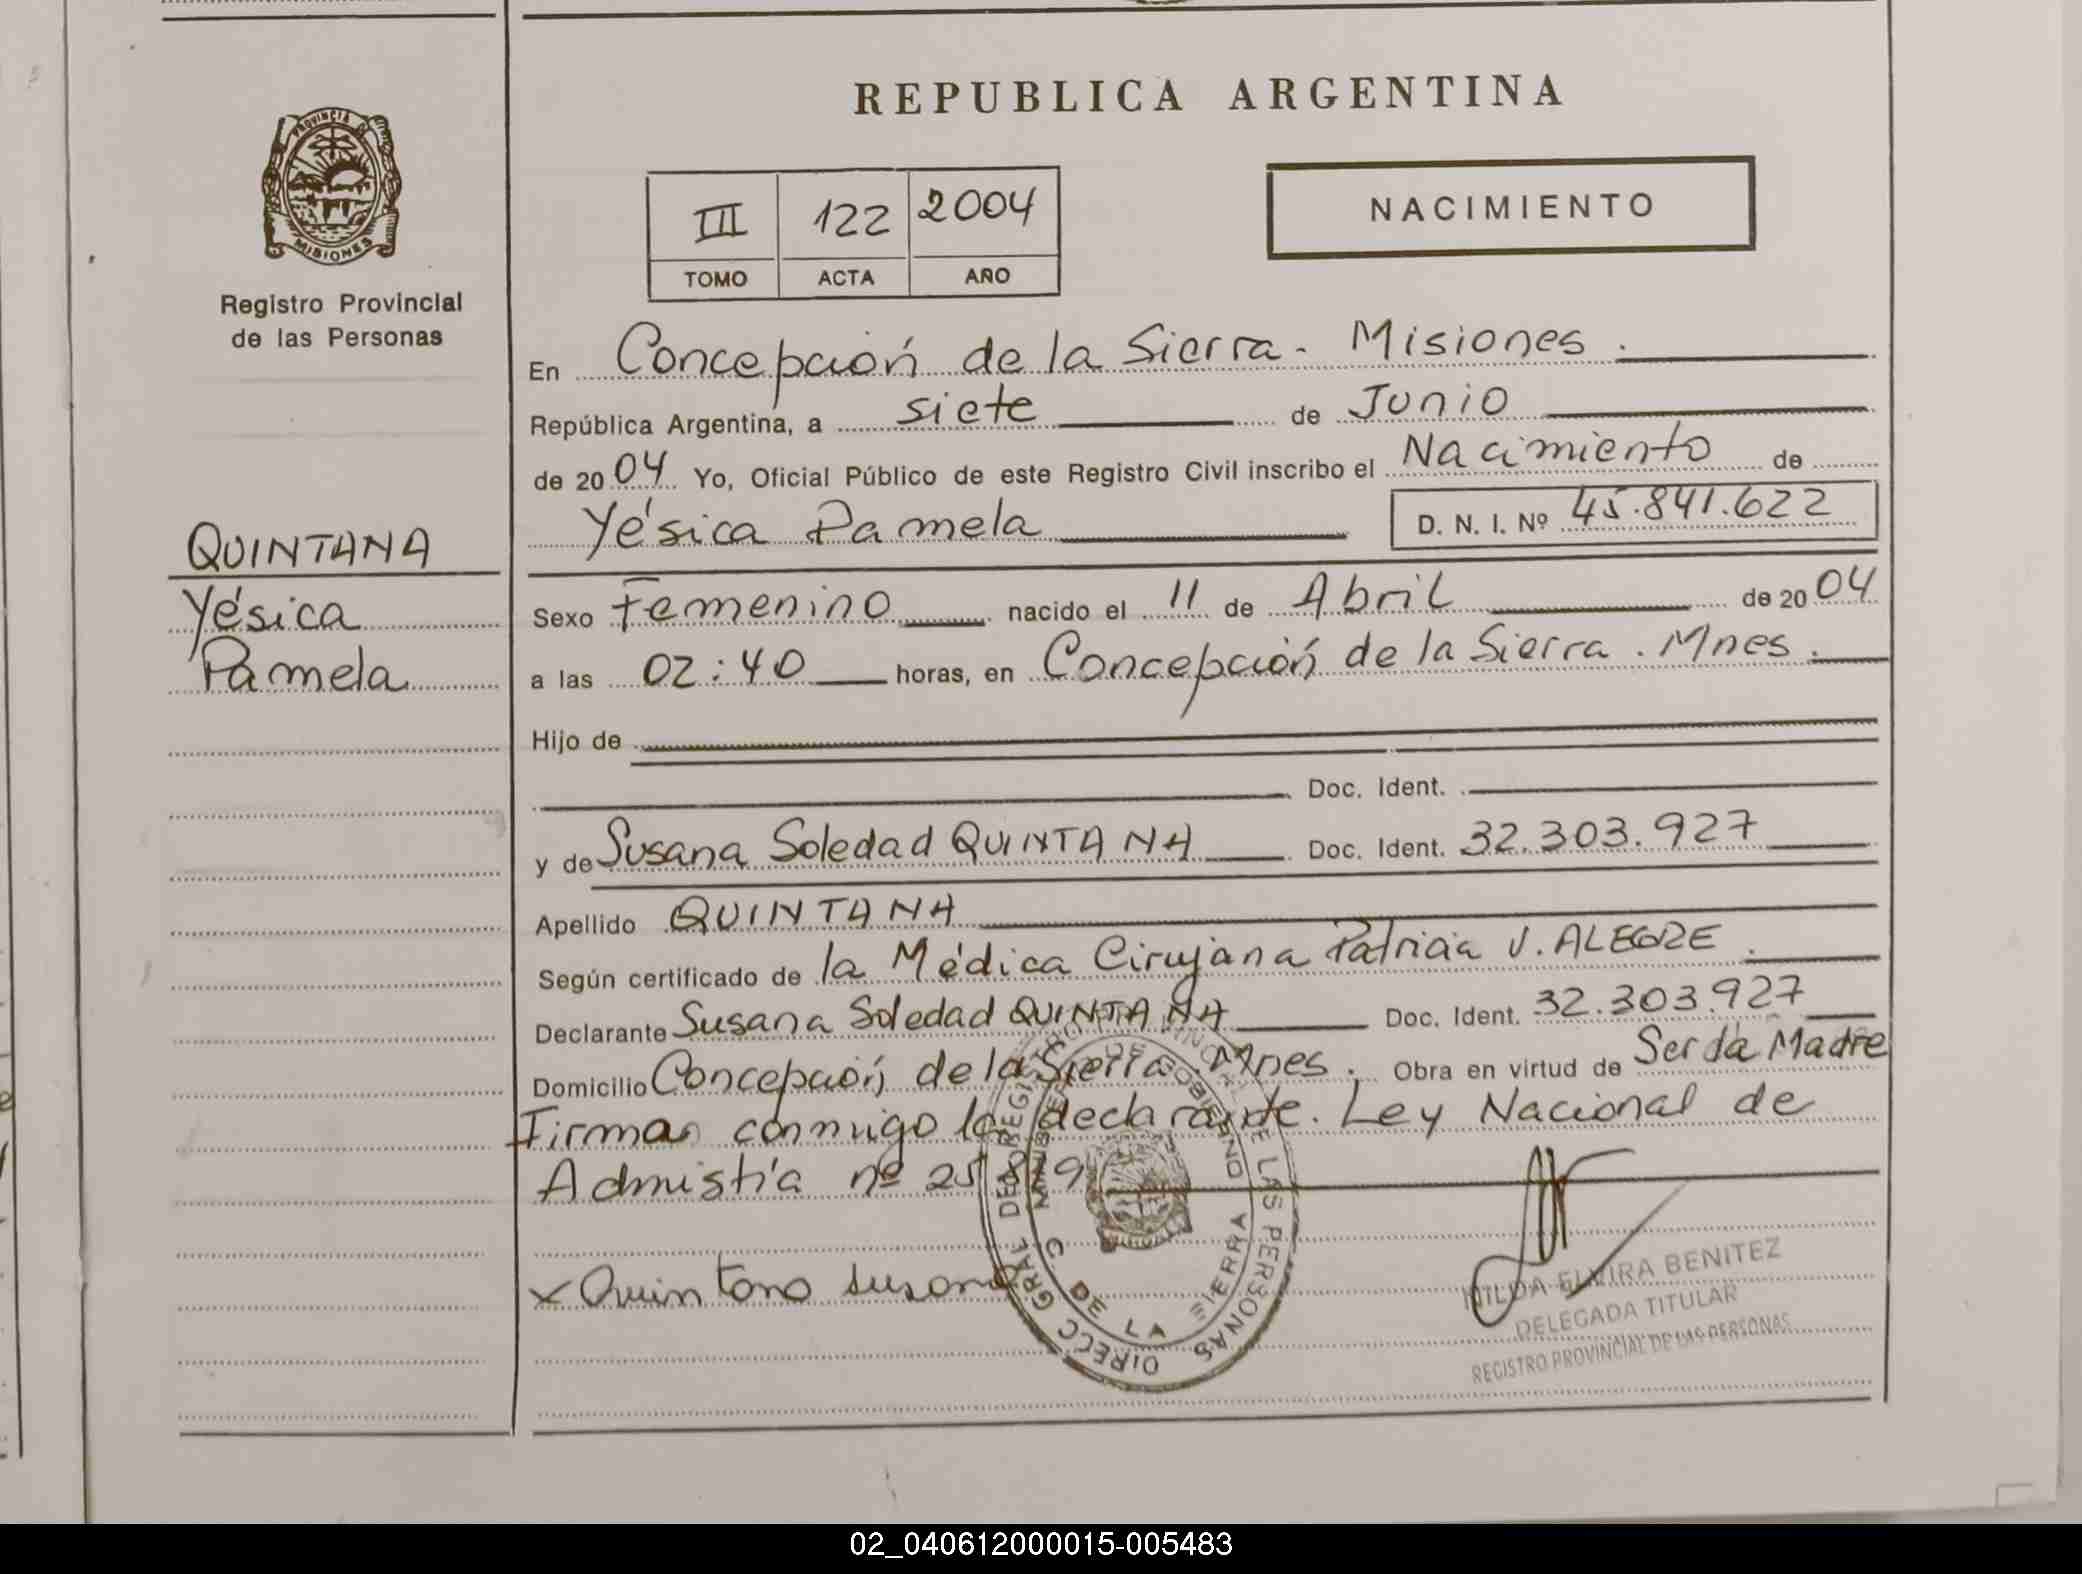 REPUBLICA ARGENTINA
PROVINCIA DE MISIONES
Registro Provincial
de las Personas
III 122 2004
TOMO ACTA AÑO
NACIMIENTO
En Concepción de la Sierra - Misiones.
República Argentina, a siete de Junio
de 2004 Yo, Oficial Público de este Registro Civil inscribo el Nacimiento de
Yésica Pamela D. N. I. Nº 45.841.622
QUINTANA
Yésica
Pamela
Sexo Femenino nacido el 11 de Abril de 2004
a las 02:40 horas, en Concepción de la Sierra. Mnes.
Hijo de
Doc. Ident.
y de Susana Soledad QUINTANA Doc. Ident. 32.303.927
Apellido QUINTANA
Según certificado de la Médica Cirujana Patricia V. ALEGRE.
Declarante Susana Soledad QUINTANA Doc. Ident. 32.303.927
Domicilio Concepción de la Sierra. Mnes. Obra en virtud de Ser la Madre
Firman conmigo la declarante. Ley Nacional de
Admistía nº 25819
x Quintana Susana
DIRECC GRAL DEL REGISTRO PROVINCIAL DE LAS PERSONAS
MINISTERIO DE GOBIERNO
C. DE LA SIERRA
HILDA ELVIRA BENITEZ
DELEGADA TITULAR
REGISTRO PROVINCIAL DE LAS PERSONAS
02_040612000015-005483